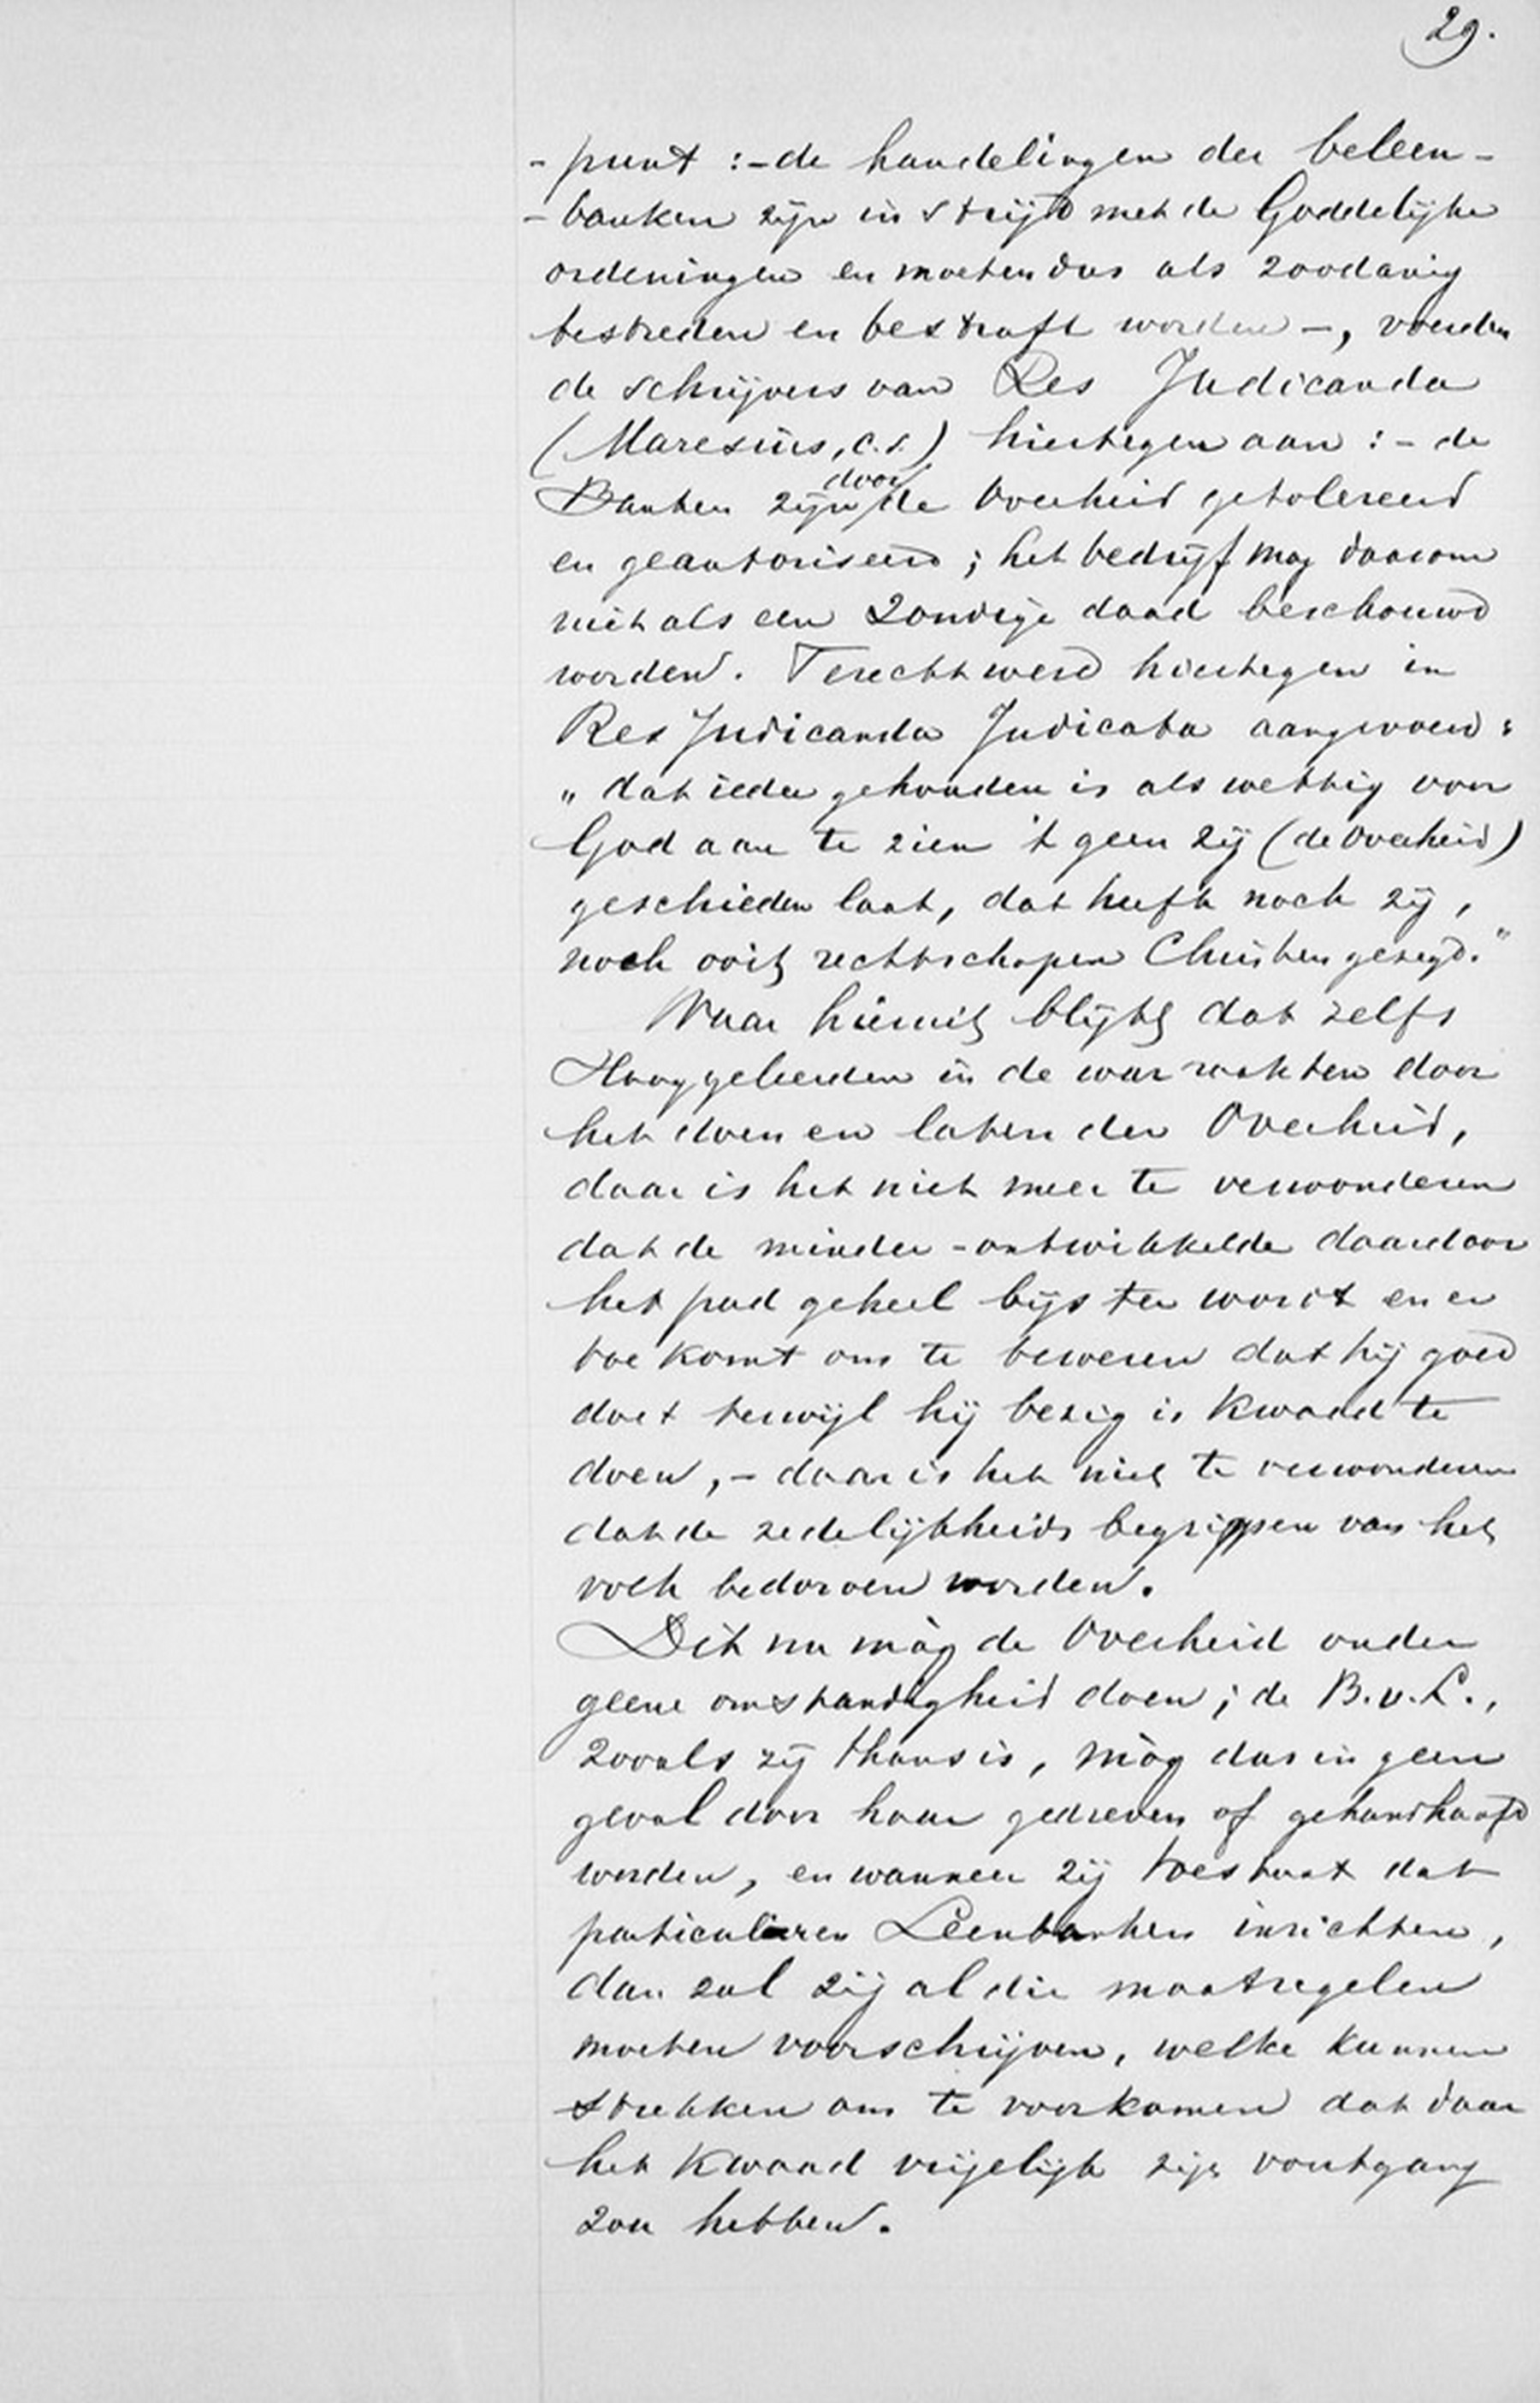 29.
- punt :- de handelingen der beleen-
- banken zijn in strijd met de Goddelijke
ordeningen en moeten dus als zoodanig
bestreden en bestraft worden -, voerden
de schrijvers van Res Judicanda
(Maresius, c.s.) hiertegen aan :- de
Banken zijn door de Overheid getolereerd
en geautoriseerd ; het bedrijf mag daarom
niet als een zondige daad beschouwd
worden. Terecht werd hiertegen in
Res Judicanda Judicata aangevoerd :
„ dat ieder gehouden is als wettig voor
God aan te zien 't geen zij (de Overheid)
geschieden laat, dat heeft noch zij,
noch ooit rechtschapen Christen gezegd."
Waar hieruit blijkt dat zelfs
Hooggeleerden in de war raakten door
het doen en laten der Overheid,
daar is het niet meer te verwonderen
dat de minder-ontwikkelde daardoor
het pad geheel bijster wordt en er
toe komt om te beweren dat hij goed
doet terwijl hij bezig is kwaad te
doen, - daar is het niet te verwonderen
dat de zedelijkheids begrippen van het
volk bedorven worden.
Dit nu màg de Overheid onder
geene omstandigheid doen ; de B.v.L.,
zooals zij thans is, màg dus in geen
geval door haar gedreven of gehandhaafd
worden, en wanneer zij toestaat dat
particulieren Leenbanken inrichten,
dan zal zij al die maatregelen
moeten voorschrijven, welke kunnen
strekken om te voorkomen dat daar
het kwaad vrijelijk zijn voortgang
zou hebben.